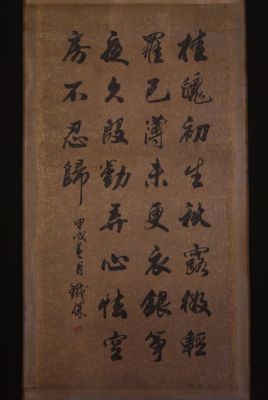 桂魄初生秋露微輕
羅已薄未更衣銀箏
夜久殷勤弄心怯空
房不忍歸
甲戌月 鐵保